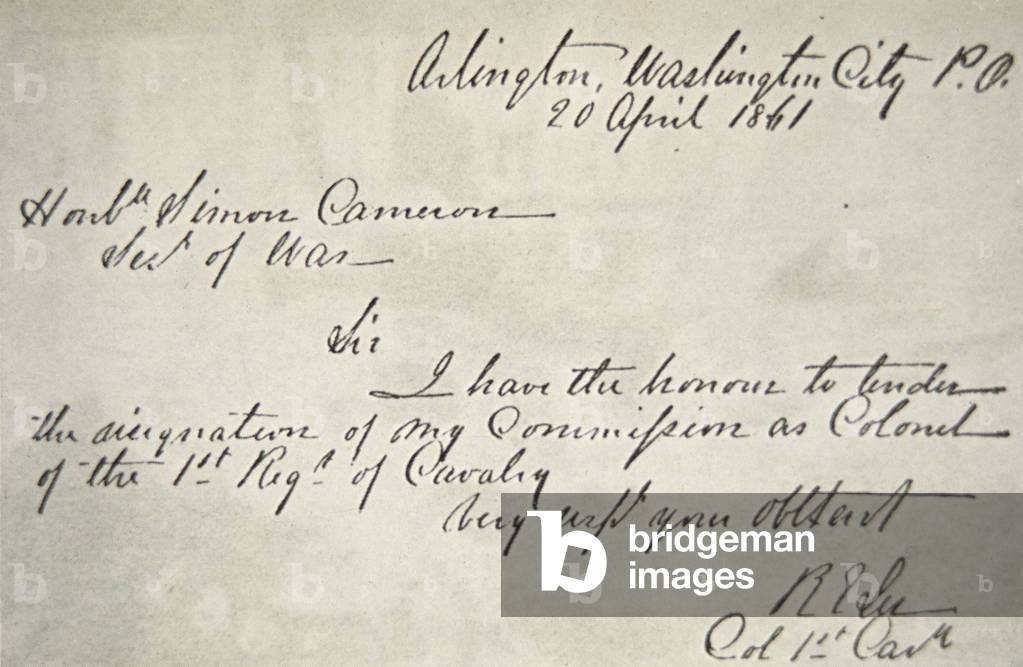 Arlington, Washington City P.O.
20 April 1861
Honble Simon Cameron
Secy of War
Sir
I have the honour to tender
the resignation of my Commission as Colonel
of the 1st Regt of Cavalry
Very respy your Obt Servt
bridgeman
images
R E Lee
Col 1st Cavy